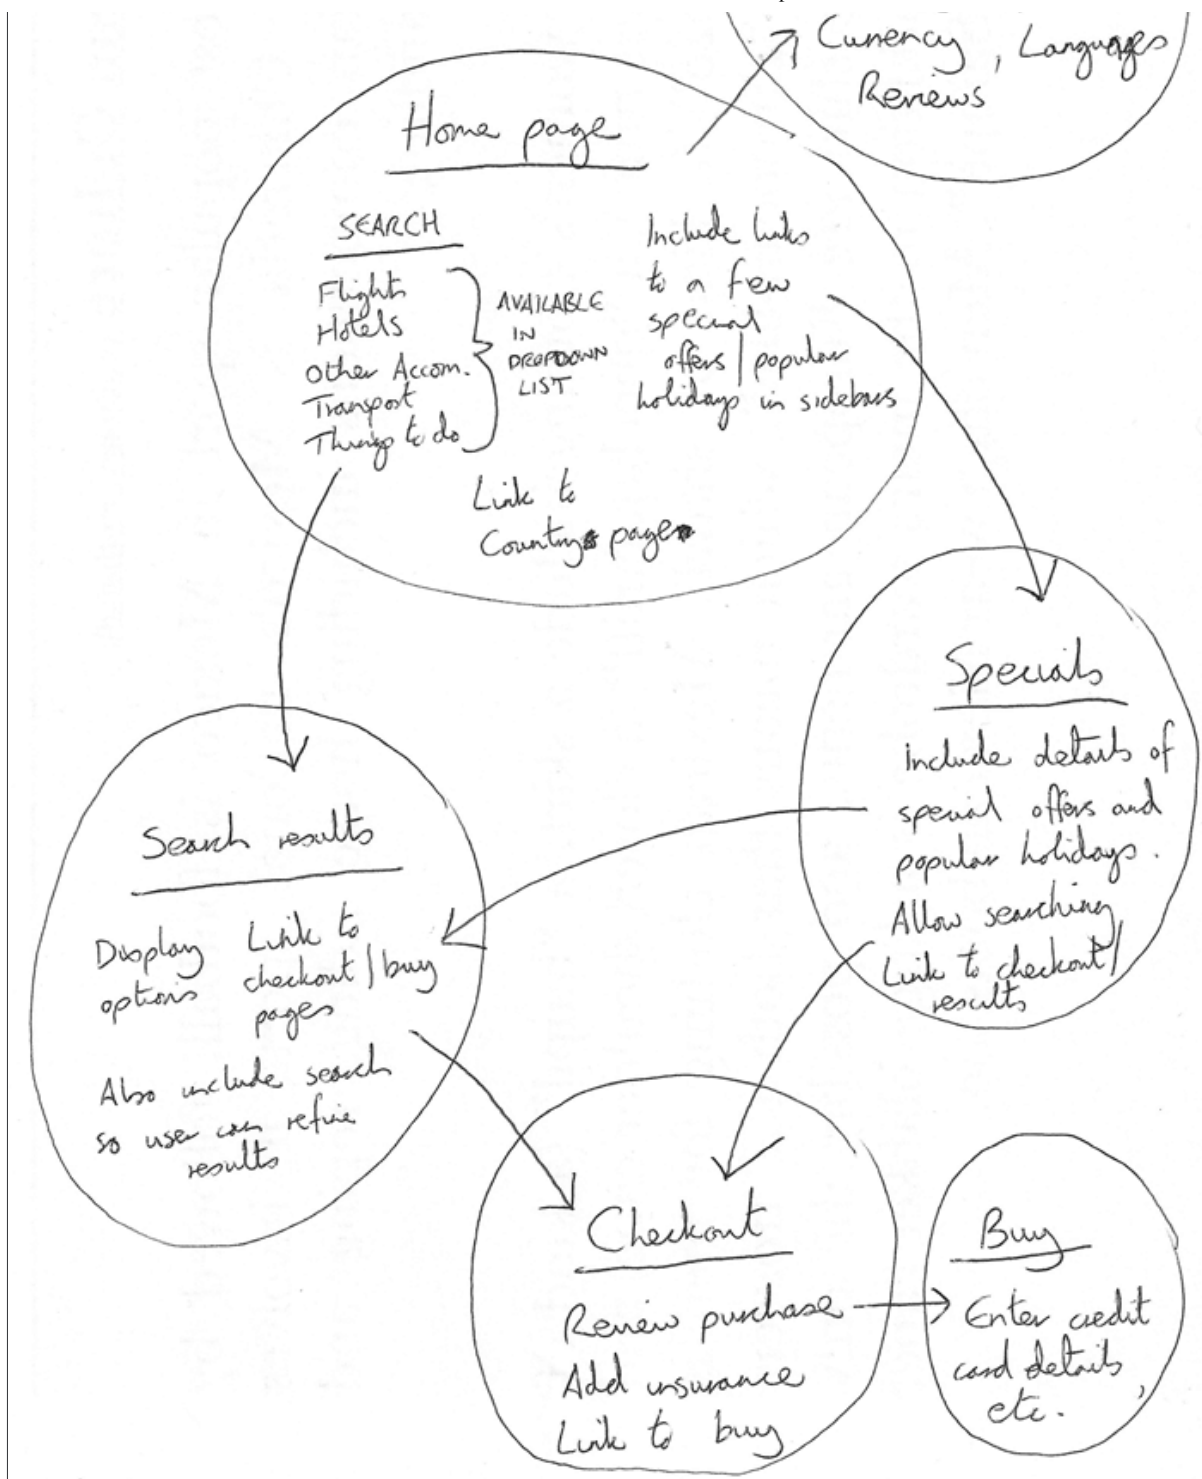 Currency, Languages
Reviews
Home page
SEARCH
Flights
Hotels
Other Accom.
Transport
Things to do
AVAILABLE
IN
DROPDOWN
LIST
Include links
to a few
special
offers/popular
holidays in sidebars
Link to
Country page
Specials
Include details of
special offers and
popular holidays.
Allow searching
Link to checkout/
results
Search results
Display
options
Link to
checkout/buy
pages
Also include search
so user can refine
results
Checkout
Review purchase
Add insurance
Link to buy
Buy
Enter credit
card details,
etc.